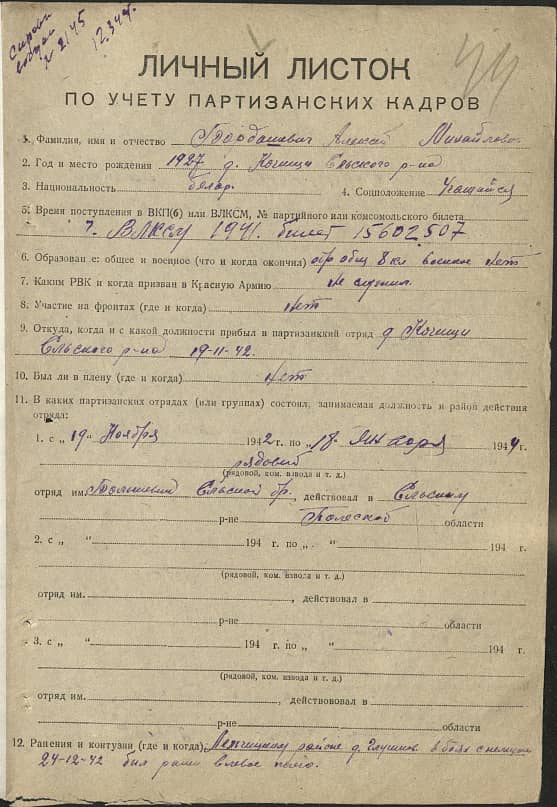 № 2145
12.344.
44
ЛИЧНЫЙ ЛИСТОК
ПО УЧЕТУ ПАРТИЗАНСКИХ КАДРОВ
1. Фамилия, имя и отчество Алексей Михайлов.
2. Год и место рождения 1927 д. Кочищи Ельского р-на
3. Национальность белар. 4. Соцположение Учащийся
5. Время поступления в ВКП(б) или ВЛКСМ, № партийного или комсомольского билета
ВЛКСМ 1941. билет 15602507
6. Образование: общее и военное (что и когда окончил) общ 8 кл военное нет
7. Каким РВК и когда призван в Красную Армию не служил
8. Участие на фронтах (где и когда) нет
9. Откуда, когда и с какой должности прибыл в партизанский отряд д Кочищи
Ельского р-на 19-11-42.
10. Был ли в плену (где и когда) нет
11. В каких партизанских отрядах (или группах) состоял, занимаемая должность и район действия
отряда:
1. с „ 19 “ Ноября 1942 г. по „ 18 “ января 1944 г.
рядовой
(рядовой, ком. взвода и т. д.)
отряд им. Ельской бр., действовал в Ельским
р-не Полеской области
2. с „ “ 194 г. по „ “ 194 г.
(рядовой, ком. взвода и т. д.)
отряд им. , действовал в
р-не области
3. с „ “ 194 г. по „ “ 194 г.
(рядовой, ком. взвода и т. д.)
отряд им. , действововал в
р-не области
12. Ранения и контузии (где и когда) районе д. Глушков в боях с немцами
24-12-42 был ранен в левое